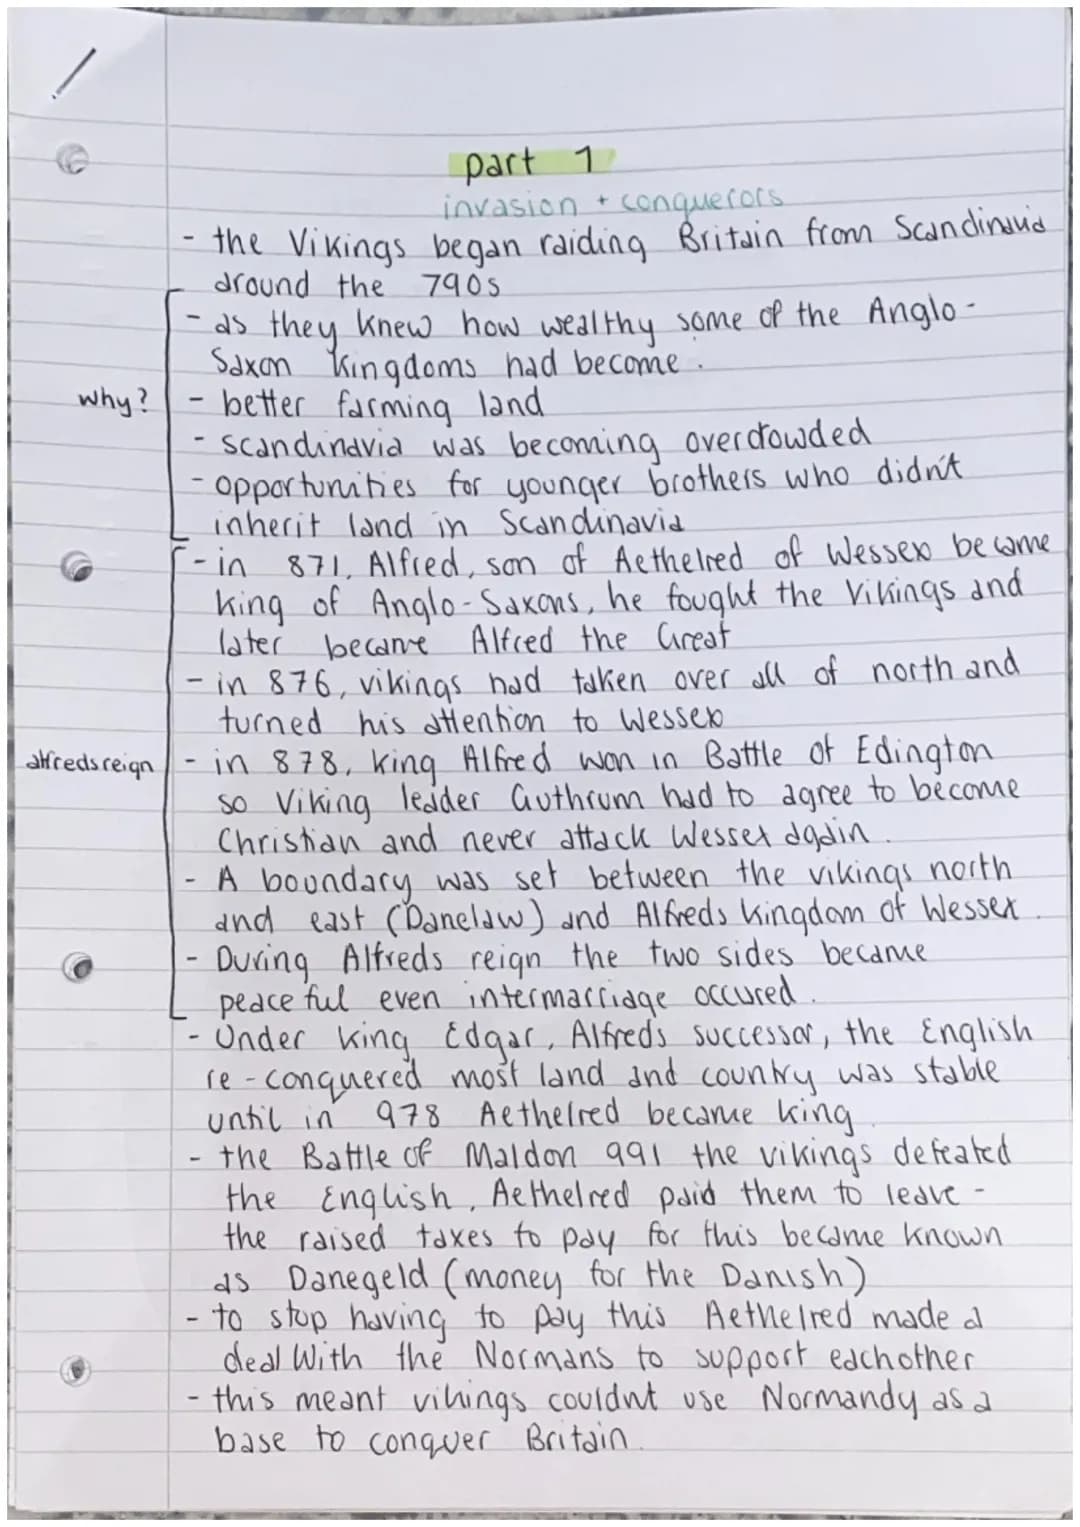 part 1
invasion + conquerors
- the Vikings began raiding Britain from Scandinavia
around the 790s
- as they knew how wealthy some of the Anglo-
Saxon Kingdoms had become.
why? - better farming land
- scandinavia was becoming overcrowded
- opportunities for younger brothers who didn't
inherit land in Scandinavia
- in 871, Alfred, son of Aethelred of Wessex became
king of Anglo-Saxons, he fought the Vikings and
later became Alfred the Great
- in 876, vikings had taken over all of north and
turned his attention to Wessex
alfreds reign - in 878, king Alfred won in Battle of Edington
so Viking leader Guthrum had to agree to become
Christian and never attack Wessex again.
- A boundary was set between the vikings north
and east (Danelaw) and Alfreds kingdom of Wessex.
- During Alfreds reign the two sides became
peaceful even intermarriage occured.
- Under king Edgar, Alfreds successor, the English
re-conquered most land and country was stable
until in 978 Aethelred became king.
- the Battle of Maldon 991 the vikings defeated
the English, Aethelred paid them to leave -
the raised taxes to pay for this became known
as Danegeld (money for the Danish)
- to stop having to pay this Aethelred made a
deal With the Normans to support eachother
- this meant vikings couldnt use Normandy as a
base to conquer Britain.